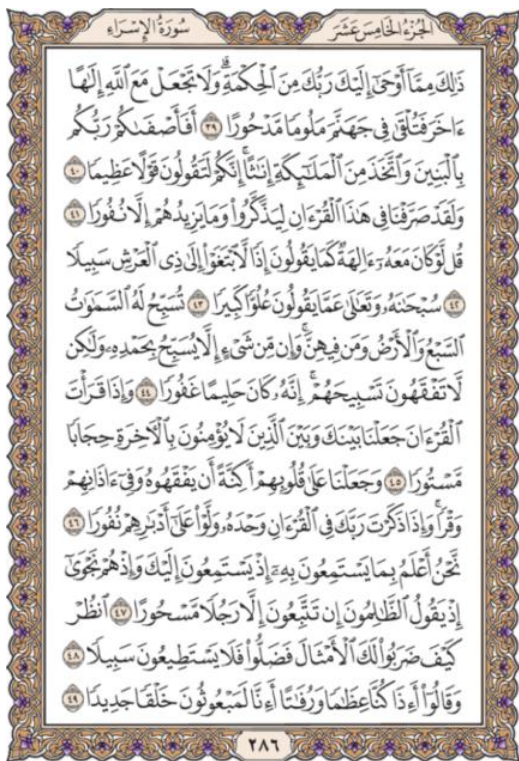 الجُزْءُ الخَامِسَ عَشَرَ
سُورَةُ الإِسْرَاءِ
ذَٰلِكَ مِمَّآ أَوْحَىٰٓ إِلَيْكَ رَبُّكَ مِنَ ٱلْحِكْمَةِ ۗ وَلَا تَجْعَلْ مَعَ ٱللَّهِ إِلَٰهًا
ءَاخَرَ فَتُلْقَىٰ فِى جَهَنَّمَ مَلُومًا مَّدْحُورًا ٣٩ أَفَأَصْفَىٰكُمْ رَبُّكُم
بِٱلْبَنِينَ وَٱتَّخَذَ مِنَ ٱلْمَلَٰٓئِكَةِ إِنَٰثًا ۚ إِنَّكُمْ لَتَقُولُونَ قَوْلًا عَظِيمًا ٤٠
وَلَقَدْ صَرَّفْنَا فِى هَٰذَا ٱلْقُرْءَانِ لِيَذَّكَّرُوا۟ وَمَا يَزِيدُهُمْ إِلَّا نُفُورًا ٤١
قُل لَّوْ كَانَ مَعَهُۥٓ ءَالِهَةٌ كَمَا يَقُولُونَ إِذًا لَّٱبْتَغَوْا۟ إِلَىٰ ذِى ٱلْعَرْشِ سَبِيلًا
٤٢ سُبْحَٰنَهُۥ وَتَعَٰلَىٰ عَمَّا يَقُولُونَ عُلُوًّا كَبِيرًا ٤٣ تُسَبِّحُ لَهُ ٱلسَّمَٰوَٰتُ
ٱلسَّبْعُ وَٱلْأَرْضُ وَمَن فِيهِنَّ ۚ وَإِن مِّن شَىْءٍ إِلَّا يُسَبِّحُ بِحَمْدِهِۦ وَلَٰكِن
لَّا تَفْقَهُونَ تَسْبِيحَهُمْ ۗ إِنَّهُۥ كَانَ حَلِيمًا غَفُورًا ٤٤ وَإِذَا قَرَأْتَ
ٱلْقُرْءَانَ جَعَلْنَا بَيْنَكَ وَبَيْنَ ٱلَّذِينَ لَا يُؤْمِنُونَ بِٱلْءَاخِرَةِ حِجَابًا
مَّسْتُورًا ٤٥ وَجَعَلْنَا عَلَىٰ قُلُوبِهِمْ أَكِنَّةً أَن يَفْقَهُوهُ وَفِىٓ ءَاذَانِهِمْ
وَقْرًا ۚ وَإِذَا ذَكَرْتَ رَبَّكَ فِى ٱلْقُرْءَانِ وَحْدَهُۥ وَلَّوْا۟ عَلَىٰٓ أَدْبَٰرِهِمْ نُفُورًا ٤٦
نَّحْنُ أَعْلَمُ بِمَا يَسْتَمِعُونَ بِهِۦٓ إِذْ يَسْتَمِعُونَ إِلَيْكَ وَإِذْ هُمْ نَجْوَىٰٓ
إِذْ يَقُولُ ٱلظَّٰلِمُونَ إِن تَتَّبِعُونَ إِلَّا رَجُلًا مَّسْحُورًا ٤٧ ٱنظُرْ
كَيْفَ ضَرَبُوا۟ لَكَ ٱلْأَمْثَالَ فَضَلُّوا۟ فَلَا يَسْتَطِيعُونَ سَبِيلًا ٤٨
وَقَالُوٓا۟ أَءِذَا كُنَّا عِظَٰمًا وَرُفَٰتًا أَءِنَّا لَمَبْعُوثُونَ خَلْقًا جَدِيدًا ٤٩
٢٨٦